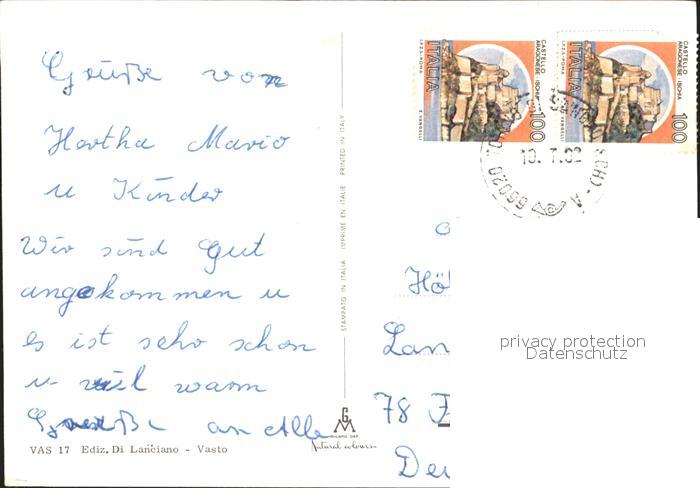 Grüße von
Hertha Mario
u Kinder
Wir sind gut
angekommen u
es ist sehr schon
u viel warm
Grüße an Alle
VAS 17 Ediz. Di Lanciano - Vasto
STAMPATO IN ITALIA IMPRIMÉ EN ITALIE PRINTED IN ITALY
MILANO
natural colours
CASTELLO ARAGONESE·ISCHIA
ITALIA
100
I.P.Z.S. ROMA
E. VANGELLI
CASTELLO ARAGONESE·ISCHIA
ITALIA
100
I.P.Z.S. ROMA
E. VANGELLI
66020
(CH) - A
10. 7.82
Hö
Lan
78 F
Deu
privacy protection
Datenschutz